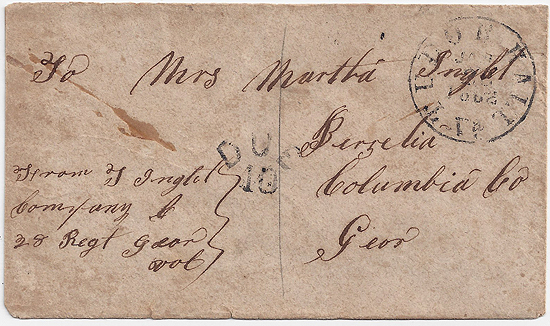 To Mrs Martha Inglet
Berzelia
Columbia Co
Geor
From J Inglet
Company
28 Regt Geor
vol
DUE
10
TUDOR HALL
JAN
1862
Va